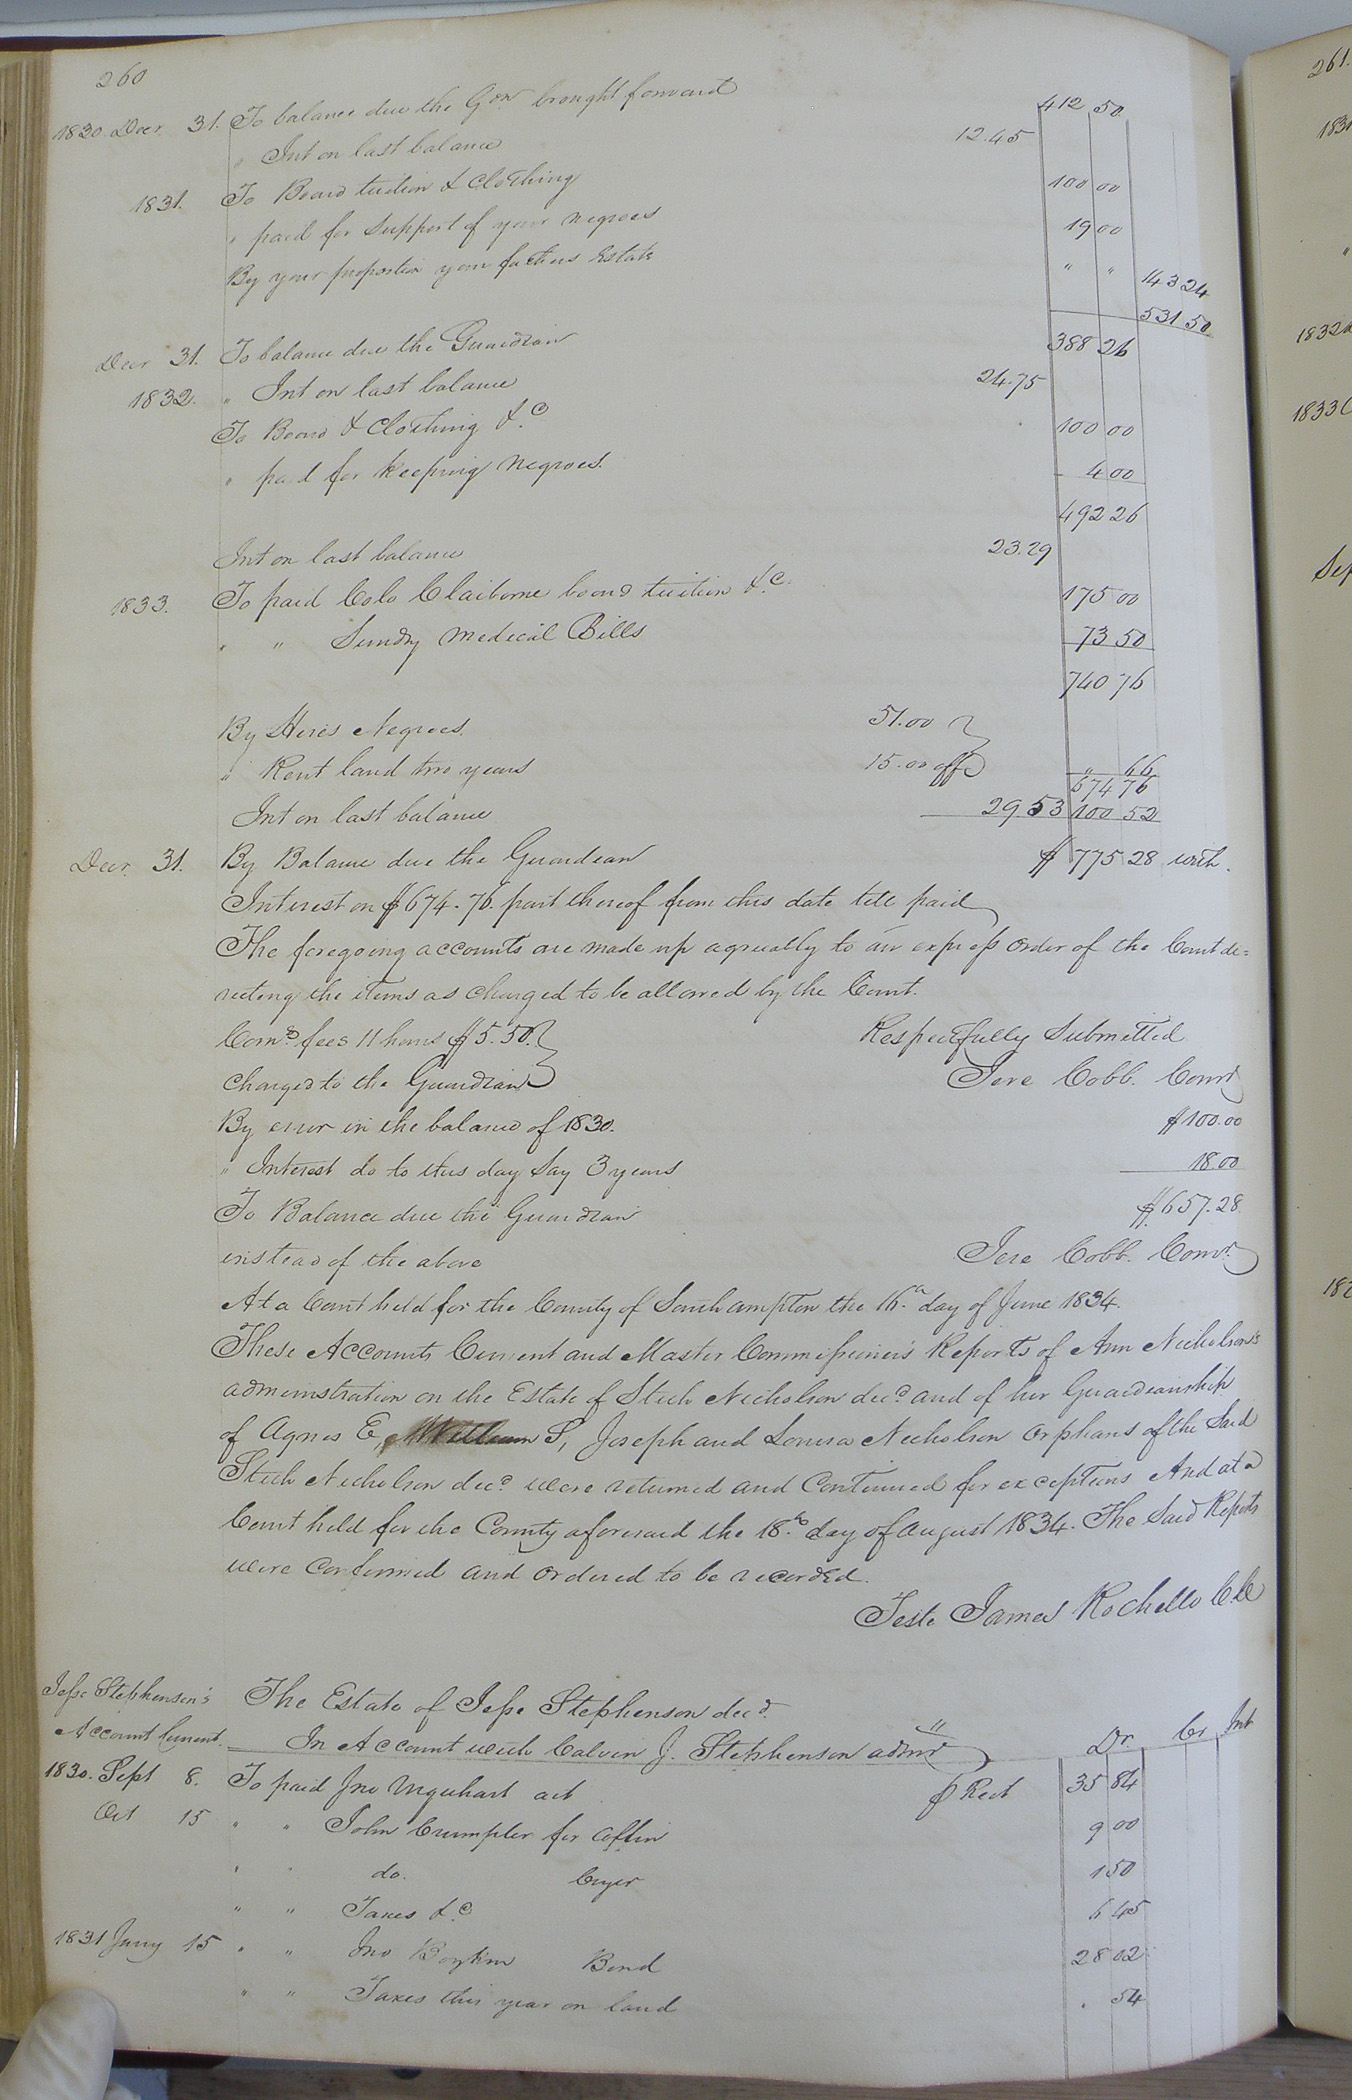 260
1830. Decr. 31. To balance due the Gdn brought forward 412 50
" Int on last balance 12.45
1831. To Board tuition & Clothing 100 00
" paid for Support of your negroes 19 00
By your proportion your fathers Estate " " 143 24
531 50
Decr 31. To balance due the Guardian 388 26
1832. " Int on last balance 24.75
To Board & Clothing &c 100 00
" paid for keeping negroes. 4 00
492 26
Int on last balance 23.29
1833. To paid Colo Claiborne board tuition &c. 175 00
" " Sundry Medical Bills 73 50
740 76
By Hires Negroes. 51.00
" Rent land two years 15.00 " 66
674 76
Int on last balance 29 53 100 52
Decr. 31. By Balance due the Guardian $ 775 28 with
Interest on $674.76. part thereof from this date till paid
The foregoing accounts are made up agreeably to an express order of the Court de=
recting the items as charged to be allowed by the Court.
Coms. fees 11 hours $5.50. Respectfully Submitted
Charged to the Guardian Jere Cobb. Comr
By error in the balance of 1830. $100.00
" Interest do to this day Say 3 years 18.00
To Balance due the Guardian $657.28
instead of the above Jere Cobb. Comr.
At a Court held for the County of Southampton the 16th day of June 1834.
These Accounts Current and Master Commissioner's Reports of Ann Nicholson's
administration on the Estate of Stith Nicholson decd. and of her Guardianship
of Agnes E, William S, Joseph and Louisa Nicholson Orphans of the Said
Stith Nicholson decd. were returned and Continued for exceptions And at a
Court held for the County aforesaid the 18th day of August 1834. The Said Reports
were Confirmed and Ordered to be recorded.
Teste James Rochelle Clk
Jesse Stephenson's The Estate of Jesse Stephenson decd.
Account Current. In Account with Calvin J. Stephenson admr Dr Cr Int
1830. Sept 8. To paid Jno Urquhart act $ Rect 35 84
Oct 15 " " John Crumpler for Coffin 9 00
" " do. Cryer 1 50
" " Taxes &c 6 45
1831 Jany 15 " " Jno Boykin Bond 28 02
" " Taxes this year on land . 54
261.
1832
1833